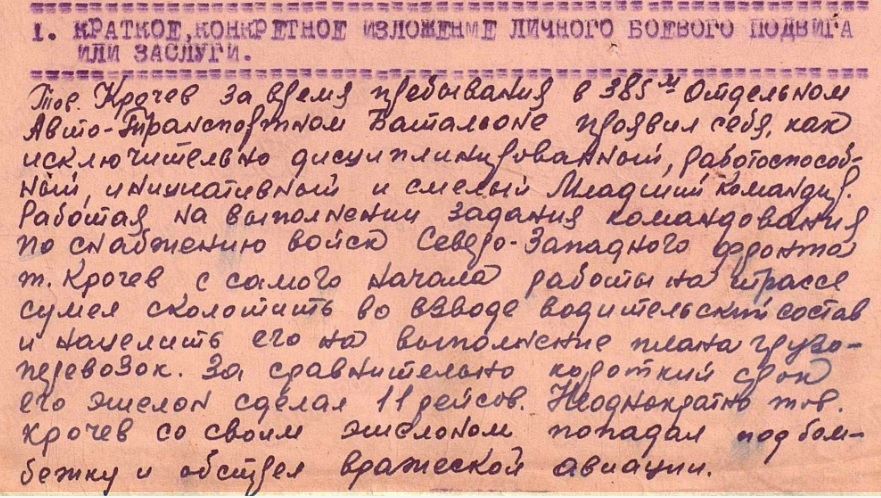 I. КРАТКОЕ, КОНКРЕТНОЕ ИЗЛОЖЕНИЕ ЛИЧНОГО БОЕВОГО ПОДВИГА
ИЛИ ЗАСЛУГИ.
Тов. Крочев за время пребывания в 385м Отдельном
Авто-Транспортном Батальоне проявил себя, как
исключительно дисциплинированный, работоспособ-
ный, инициативный и смелый Младший командир.
Работая на выполнении задания командования
по снабжению войск Северо-Западного фронта
т. Крочев с самого начала работы на трассе
сумел сколотить во взводе водительский состав
и нацелить его на выполнение плана грузо-
перевозок. За сравнительно короткий срок
его эшелон сделал 11 рейсов. Неоднократно тов.
Крочев со своим эшелоном попадал под бом-
бежку и обстрел вражеской авиации.